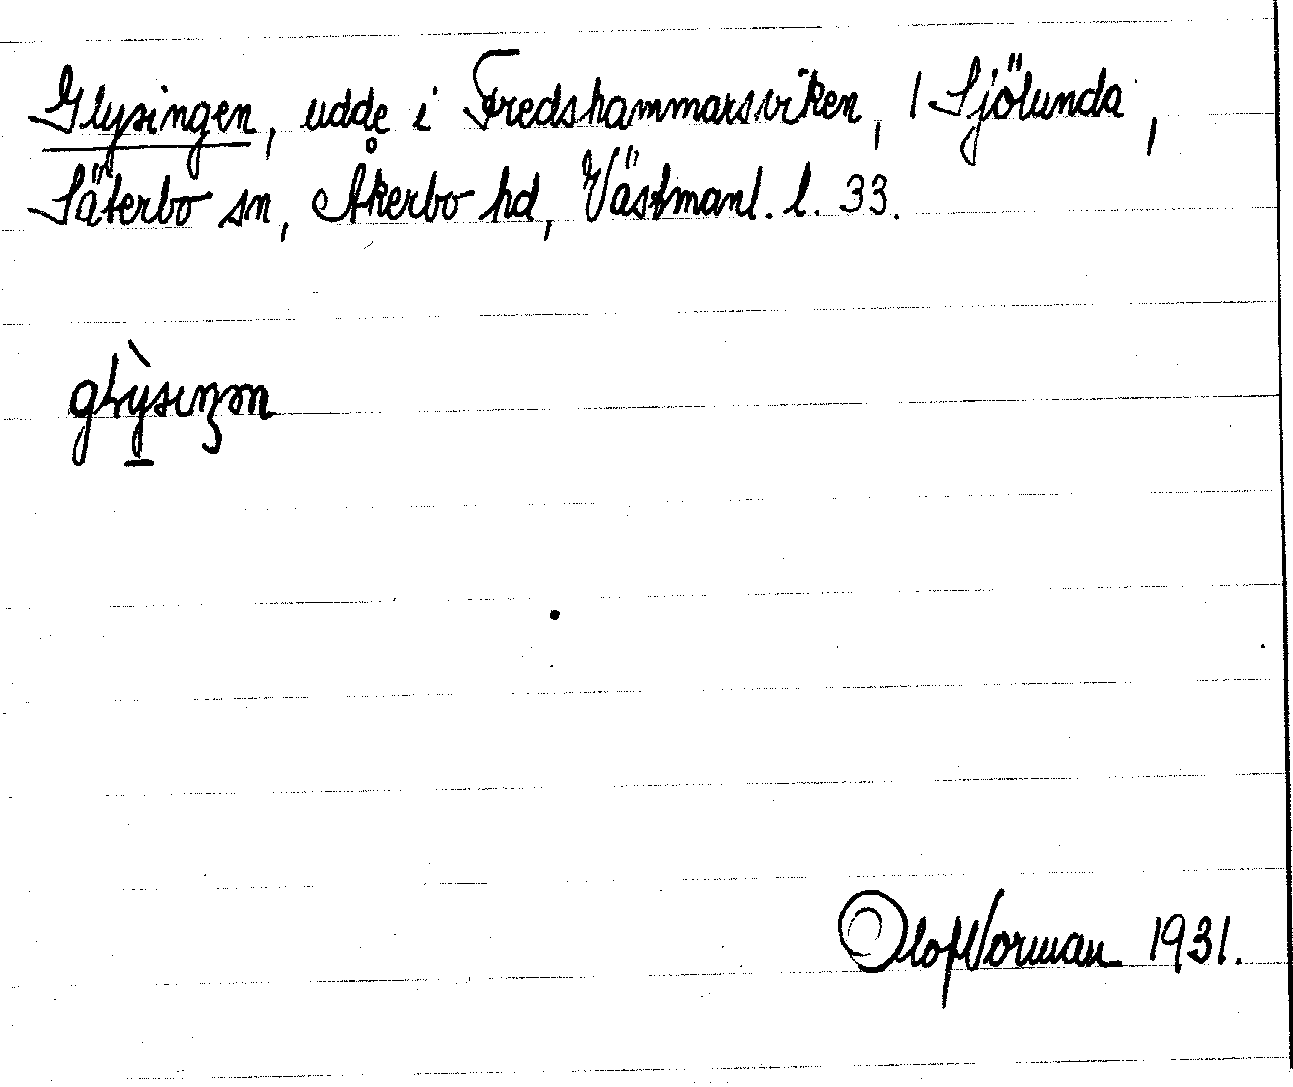 Glysingen, udde i Fredshammarsviken, / Sjölunda,
Säterbo sn, Åkerbo hd, Västmanl. l. 33.
glỳsıŋən
Olof Norman 1931.